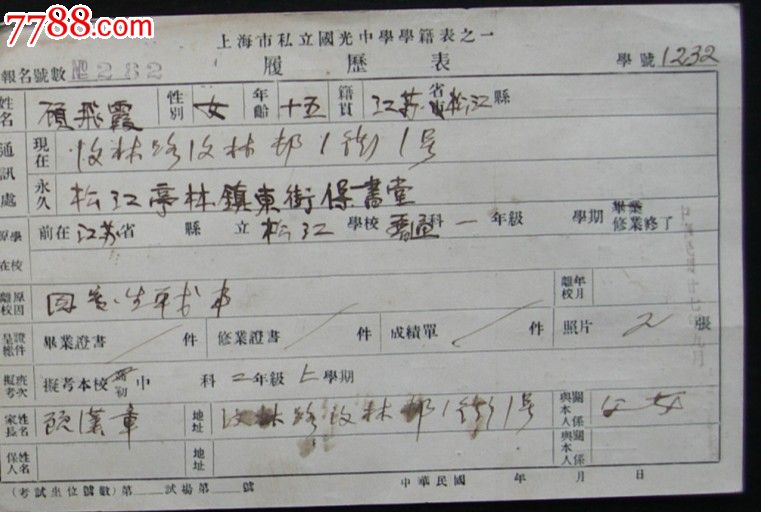 7788.com
上海市私立國光中學學籍表之一
報名號數 № 232 履歷表 學號 1232
姓名 顧飛霞 性別 女 年齡 十五 籍貫 江苏省市松江縣
通訊處 現在 汝林路汝林邨1街1号
永久 松江亭林鎮東街保書堂
原在學校 前在江苏省 縣立 松江 學校 科一年級 學期 畢業 修業終了
離校原因 離校年月
呈繳證件 畢業證書 / 件 修業證書 / 件 成績單 / 件 照片 2 張
擬考班次 擬考本校 高初中 科二年級上學期
家長姓名 顧漢章 地址 汝林路汝林邨1街1号 與本人關係 父女
保人姓名 地址 與本人關係
(考試座位號數)第 試場第 號 中華民國 年 月 日